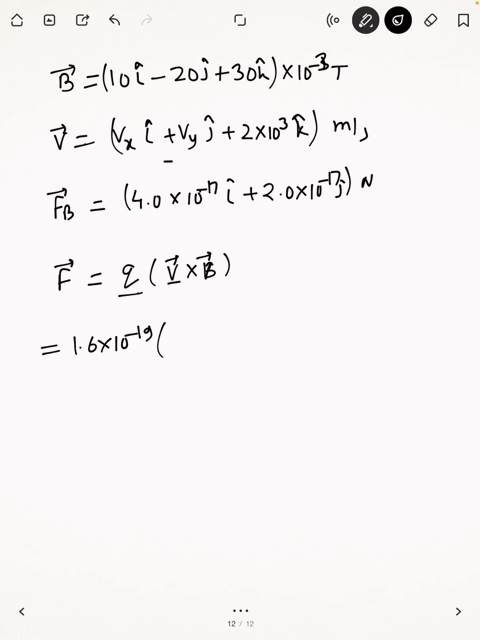 B⃗ = (10î − 20ĵ + 30k̂) × 10⁻³ T
V⃗ = (Vₓ î + Vy ĵ + 2×10³ k̂) m/s
F⃗B = (4.0 × 10⁻¹⁷ î + 2.0×10⁻¹⁷ ĵ) N
F⃗ = q (V⃗ × B⃗)
= 1.6×10⁻¹⁹ (
12 / 12